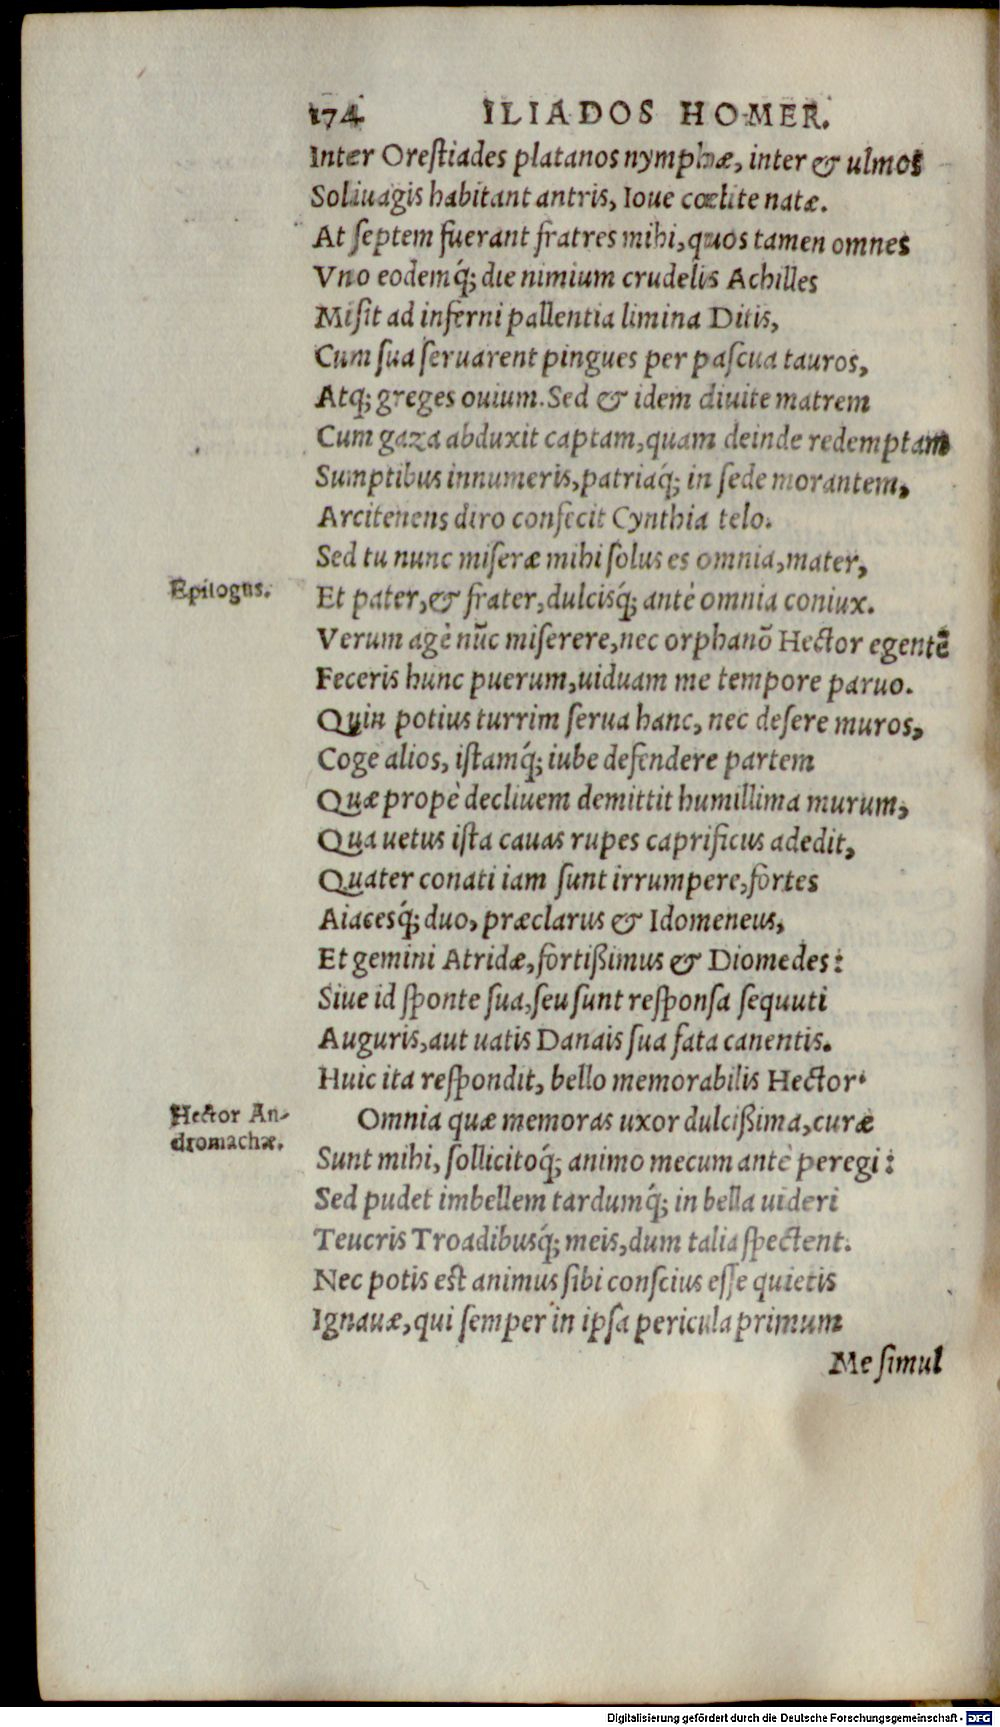 174 ILIADOS HOMER.
Inter Oreſtiades platanos nymphæ, inter & ulmos
Soliuagis habitant antris, Ioue cœlite natæ.
At ſeptem fuerant fratres mihi, quos tamen omnes
Vno eodemq́; die nimium crudelis Achilles
Miſit ad inferni pallentia limina Ditis,
Cum ſua ſeruarent pingues per paſcua tauros,
Atq; greges ouium. Sed & idem diuite matrem
Cum gaza abduxit captam, quam deinde redemptam
Sumptibus innumeris, patriaq́; in ſede morantem,
Arcitenens diro confecit Cynthia telo.
Sed tu nunc miſeræ mihi ſolus es omnia, mater,
Epilogus.
Et pater, & frater, dulcisq́; antè omnia coniux.
Verum agè nūc miſerere, nec orphanō Hector egentē
Feceris hunc puerum, uiduam me tempore paruo.
Quin potius turrim ſerua hanc, nec deſere muros,
Coge alios, iſtamq́; iube defendere partem
Quæ propè decliuem demittit humillima murum,
Qua uetus iſta cauas rupes caprificus adedit,
Quater conati iam ſunt irrumpere, fortes
Aiacesq́; duo, præclarus & Idomeneus,
Et gemini Atridæ, fortißimus & Diomedes:
Siue id ſponte ſua, ſeu ſunt reſponſa ſequuti
Auguris, aut uatis Danais ſua fata canentis.
Huic ita reſpondit, bello memorabilis Hector.
Hector An-
dromachæ.
Omnia quæ memoras uxor dulcißima, curæ
Sunt mihi, ſollicitoq́; animo mecum antè peregi:
Sed pudet imbellem tardumq́; in bella uideri
Teucris Troadibusq́; meis, dum talia ſpectent.
Nec potis est animus ſibi conſcius eſſe quietis
Ignauæ, qui ſemper in ipſa pericula primum
Me ſimul
Digitalisierung gefördert durch die Deutsche Forschungsgemeinschaft - DFG